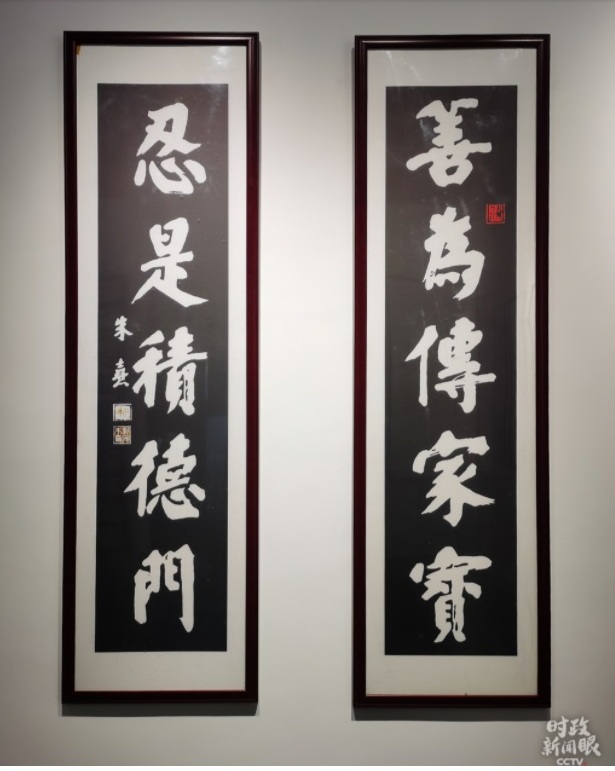 善為傳家寶
忍是積德門
朱熹
时政
新闻眼
CCTV